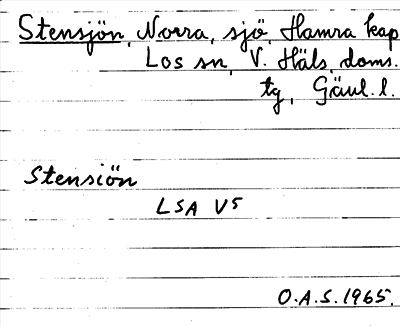 Stensjön, Norra, sjö, Hamra kap
Los sn, V. Häls. doms.
tg, Gävl. l.
Stensiön
LSA V5
O.A.S. 1965.